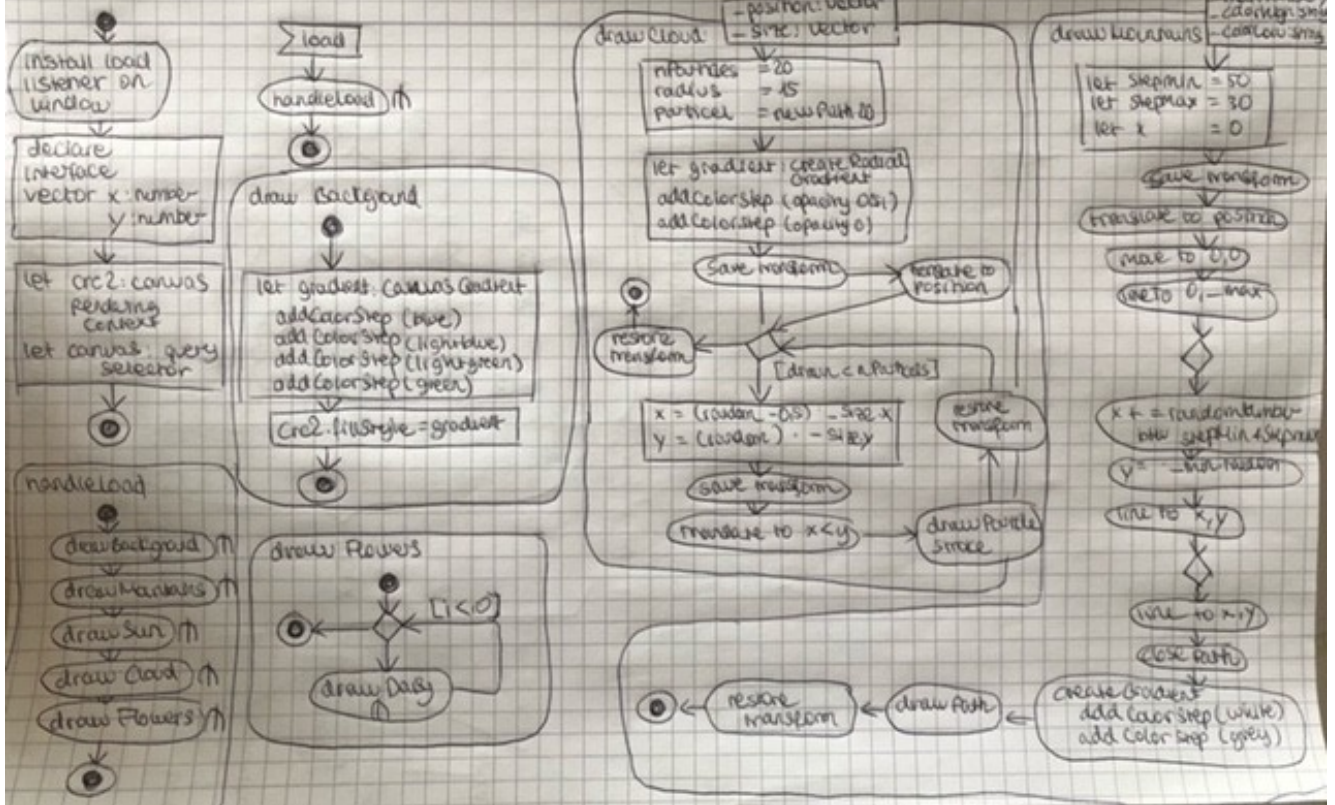 install load
listener on
window
declare
interface
vector x: number
y: number
let crc2: canvas
Rendering
Context
let canvas: query
selector
handleload
drawBackground
drawMountains
drawSun
draw Cloud
draw Flowers
load
handleload
draw Background
let gradient: Canvas Gradient
addColorStep (blue)
add ColorStep (lightblue)
add ColorStep (lightgreen)
addColorStep (green)
crc2.fillstyle = gradient
draw Flowers
[i<10]
draw Daisy
drawCloud:
_position: vector
_size: vector
nParticles = 20
radius = 15
particel = new Path 2D
let gradient: create Radial
Gradient
addColorStep (opacity 0.5,)
addColorStep (opacity 0)
save transform
translate to
position
restore
transform
[drawn < nParticels]
x = (random - 0,5) · _size.x
y = (random) · - size.y
restore
transform
save transform
translate to x<y
draw Particle
drawMountains
let stepmin = 50
let stepmax = 30
let x = 0
save transform
translate to position
move to 0,0
line to 0, _max
x += randomNumber
btw stepMin & Stepmax
line to x,y
line to x,y
close Path
create Gradient
add ColorStep (white)
add Color Step (grey)
draw Path
restore
transform